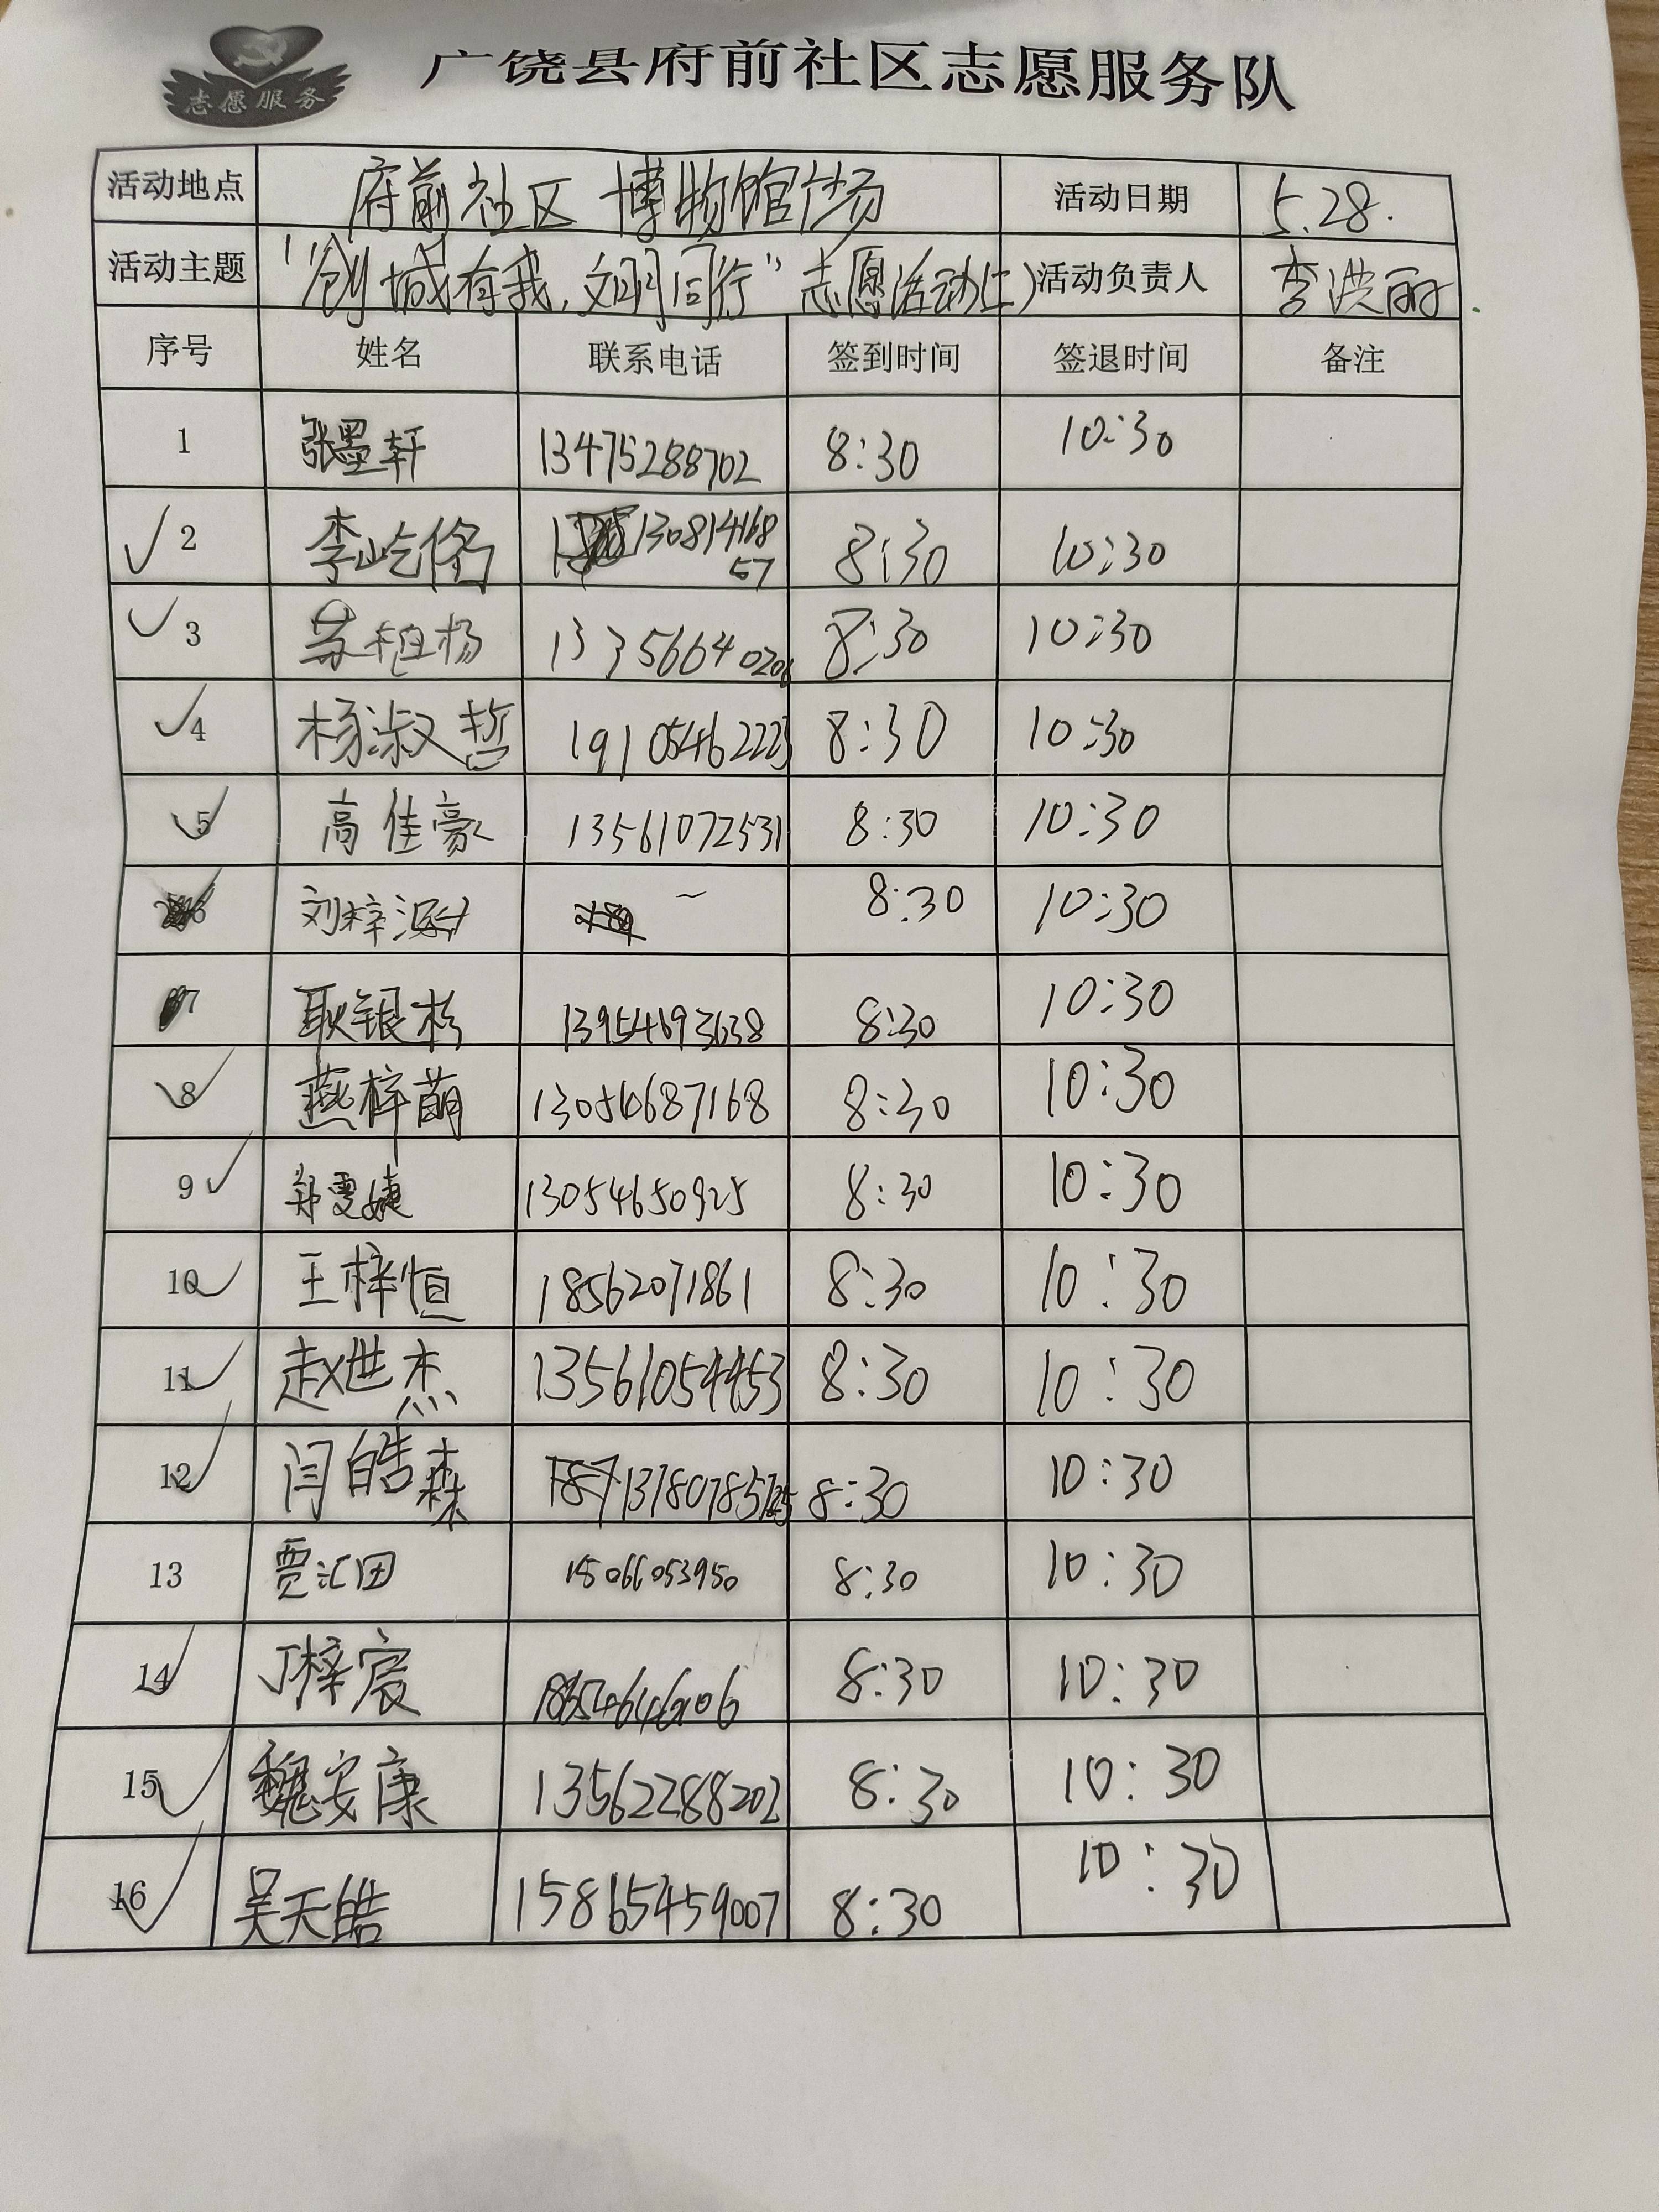 志愿服务
广饶县府前社区志愿服务队
活动地点 府前社区 博物馆广场 活动日期 5.28.
活动主题 "创城有我,文明同行"志愿活动(上) 活动负责人 李洪丽
序号 姓名 联系电话 签到时间 签退时间 备注
1 张墨轩 13475288702 8:30 10:30
2 李屹佲 13081416857 8:30 10:30
3 苏植杨 13356640206 8:30 10:30
4 杨淑哲 19105462223 8:30 10:30
5 高佳豪 13561072531 8:30 10:30
6 刘梓涵 ~ 8:30 10:30
7 耿银杉 13954693638 8:30 10:30
8 燕梓萌 13054687168 8:30 10:30
9 郑雯婕 13054650925 8:30 10:30
10 王梓恒 18562071861 8:30 10:30
11 赵世杰 13561054453 8:30 10:30
12 闫皓森 8:30 10:30
13 贾汇田 15066053950 8:30 10:30
14 丁梓宸 8:30 10:30
15 魏安康 13562288202 8:30 10:30
16 吴天皓 15865459007 8:30 10:30